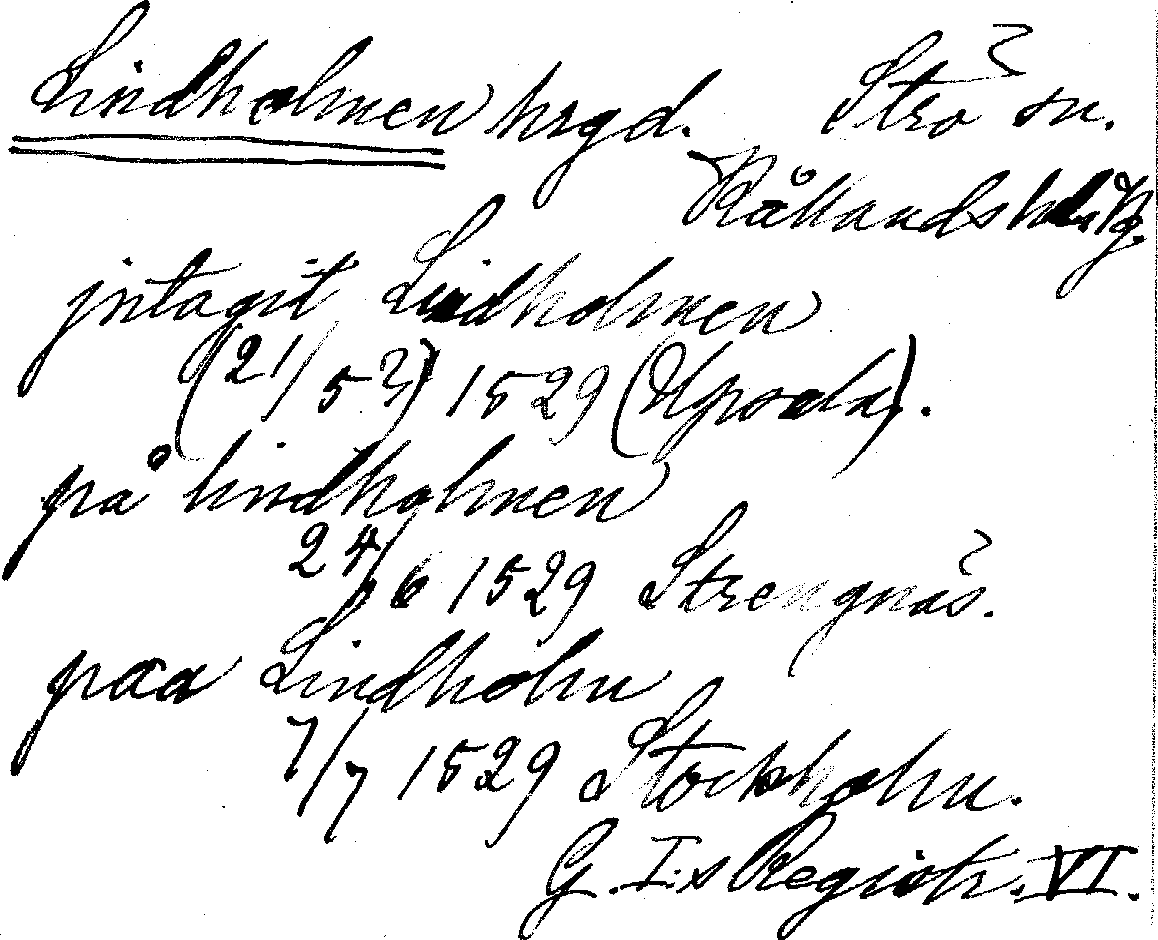 Lindholmen hrgd. Strö sn.
Kållands hd. Vg.
jntagit Lindholmen
(21/5?) 1529 (Upsala).
på lindholmen
24/6 1529 Strengnäs.
paa Lindholm
7/7 1529 Stockholm.
G. I:s Registr. VI.